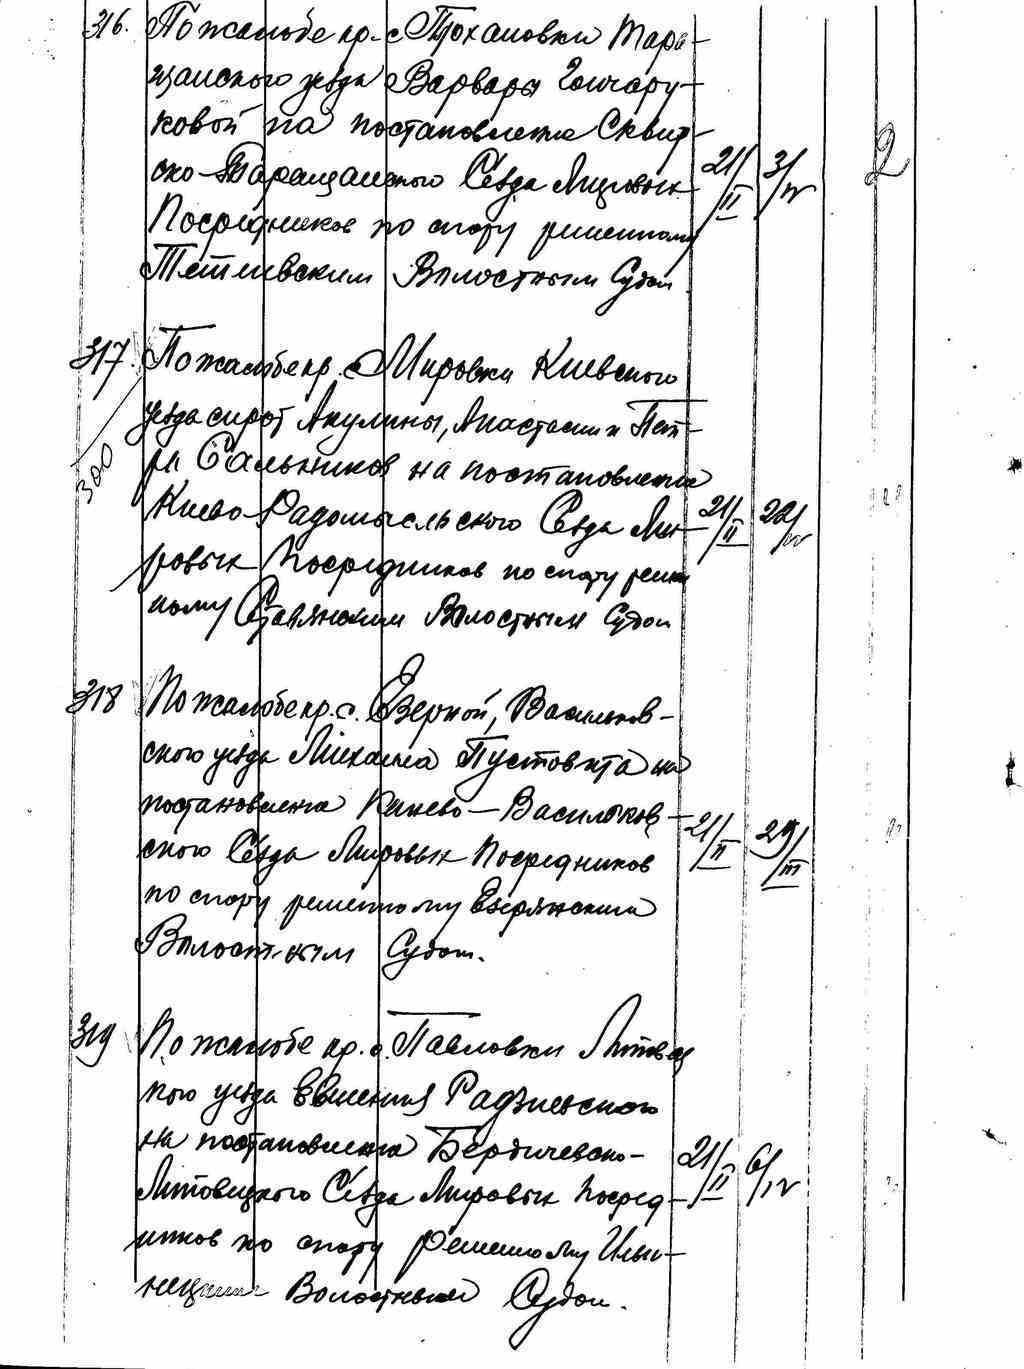 316. По жалобе кр. с. Трохановки Тара-
щанского уезда Варвары Гончару-
ковой на постановление Сквир-
ско-Таращанского Сезда Мировых 21/II 3/IV 2
Посредников по спору решенному
Тетиевским Волостным Судом
317. По жалобе кр. с. Мировки Киевского
уезда сирот Акулины, Анастасии и Пет-
ра Сальников на постановление
300
Киево-Радомысльского Сезда Ми- 21/II 22/IV
ровых Посредников по спору решен
ному Ставянским Волостным Судом
318 По жалобе кр. с. Езерной, Васильков-
ского уезда Михаила Пустовита на
постановление Киево-Васильков- 21/II 29/III
ского Сезда Мировых Посредников
по спору решенному Езерянским
Волостным Судом.
319 По жалобе кр. с. Павловки Липовец
кого уезда Радзиевского
на постановление Бердичевско-
Липовецкого Сезда Мировых Посред- 21/II 6/IV
ников по спору решенному Ильи-
нецким Волостным Судом.